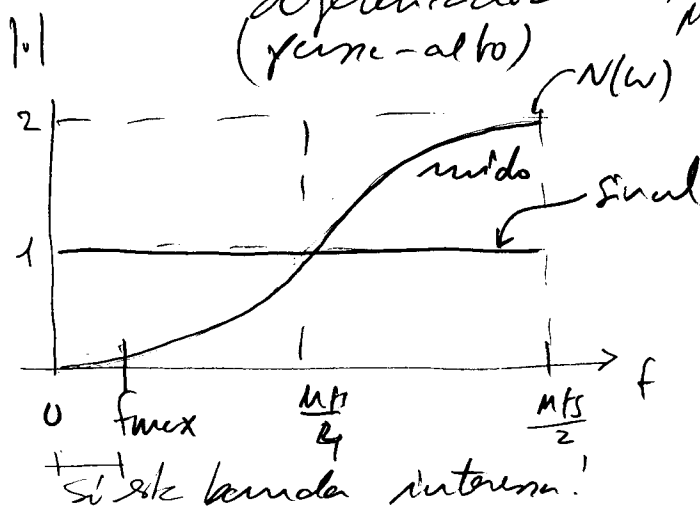 (passe-alto)
|·|
N(w)
2
ruído
sinal
1
0
fmax
Mfs
4
Mfs
2
f
só esta banda interessa!